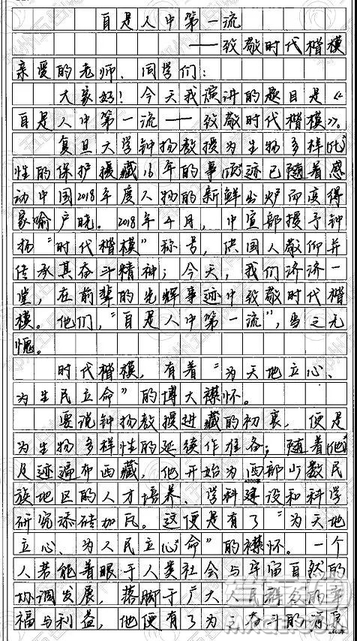 自是人中第一流
——致敬时代楷模
亲爱的老师、同学们:
大家好!今天我演讲的题目是《
自是人中第一流——致敬时代楷模》。
复旦大学钟扬教授为生物多样化
性的保护援藏16年的事迹已随着感
动中国2018年度人物的新鲜出炉而变得
家喻户晓。2018年4月,中宣部授予钟
扬“时代楷模”称号,供国人敬仰并
传承其奋斗精神;今天,我们济济一
堂,在前辈的光辉事迹中致敬时代楷
模。他们,“自是人中第一流”,当之无
愧。
时代楷模,有着“为天地立心、
为生民立命”的博大襟怀。
要说钟扬教授进藏的初衷,便是
为生物多样性的延续作准备;随着他
足迹遍布西藏,他开始为西部少数民
族地区的人才培养、学科建设和科学
研究添砖加瓦。这便是有了“为天地
立心、为人民立命”的襟怀。一个
人若能着眼于人类社会与宇宙自然的
协调发展,落脚于广大人民群众的幸
福与利益,他便有了为之奋斗的